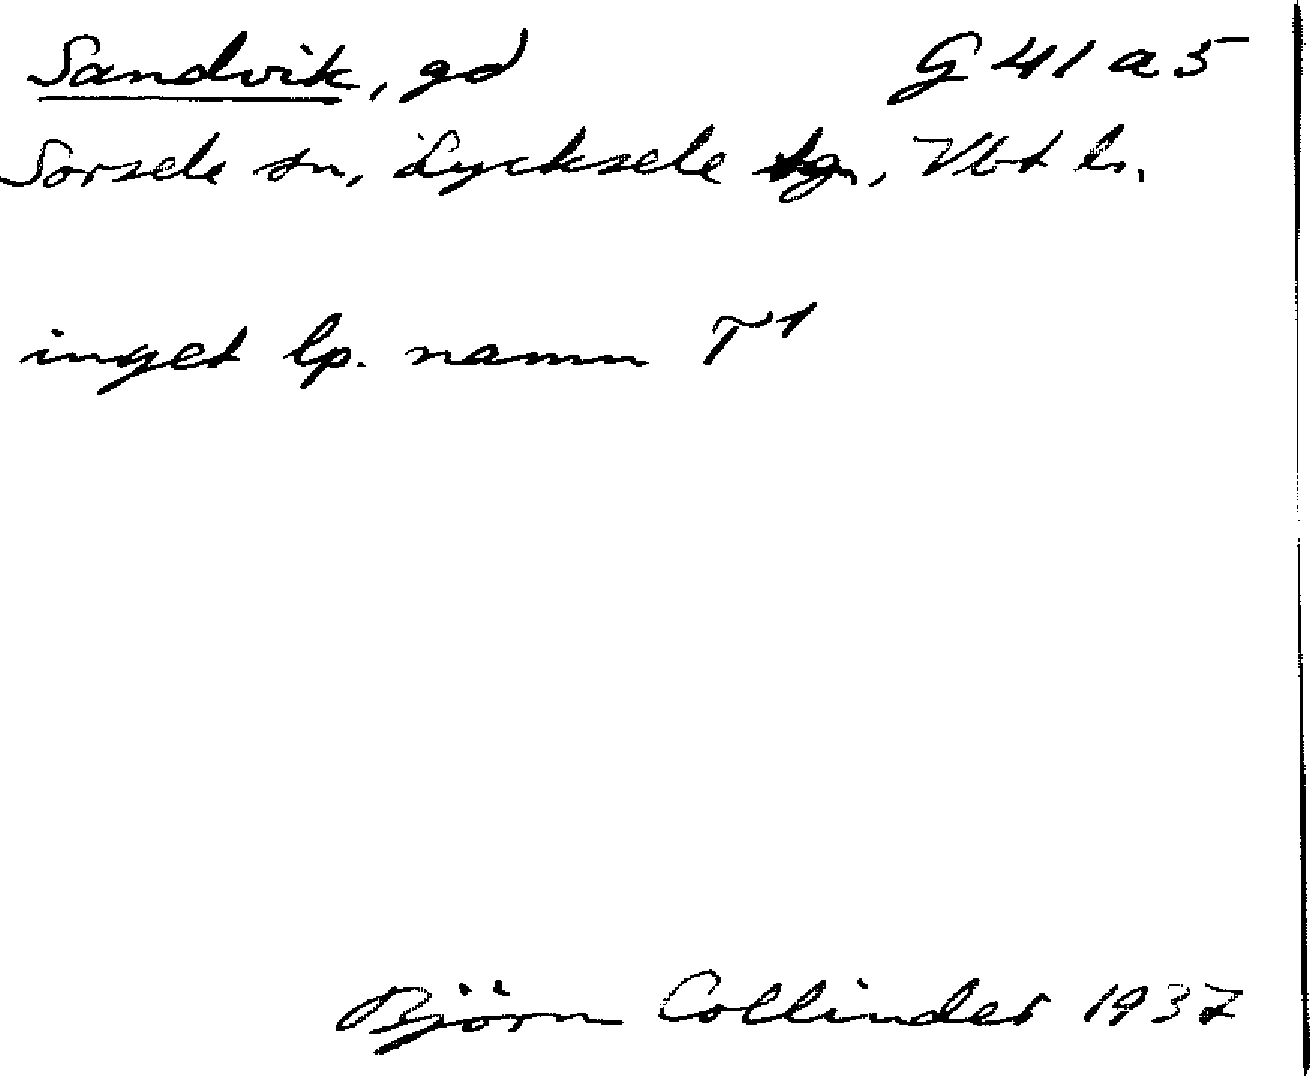 Sandvik, gd G 41 a 5
Sorsele sn, Lycksele tgn, Vbt ln.
inget lp. namn T¹
Björn Collinder 1937